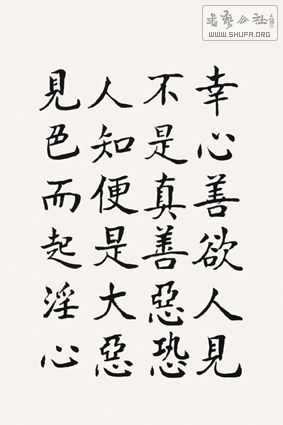 書藝公社
WWW.SHUFA.ORG
幸心善欲人見
不是真善惡恐
人知便是大惡
見色而起淫心